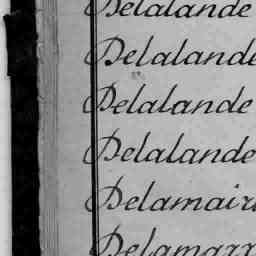 Delalande
Delalande
Delalande
Delalande
Delamair
Delamarr